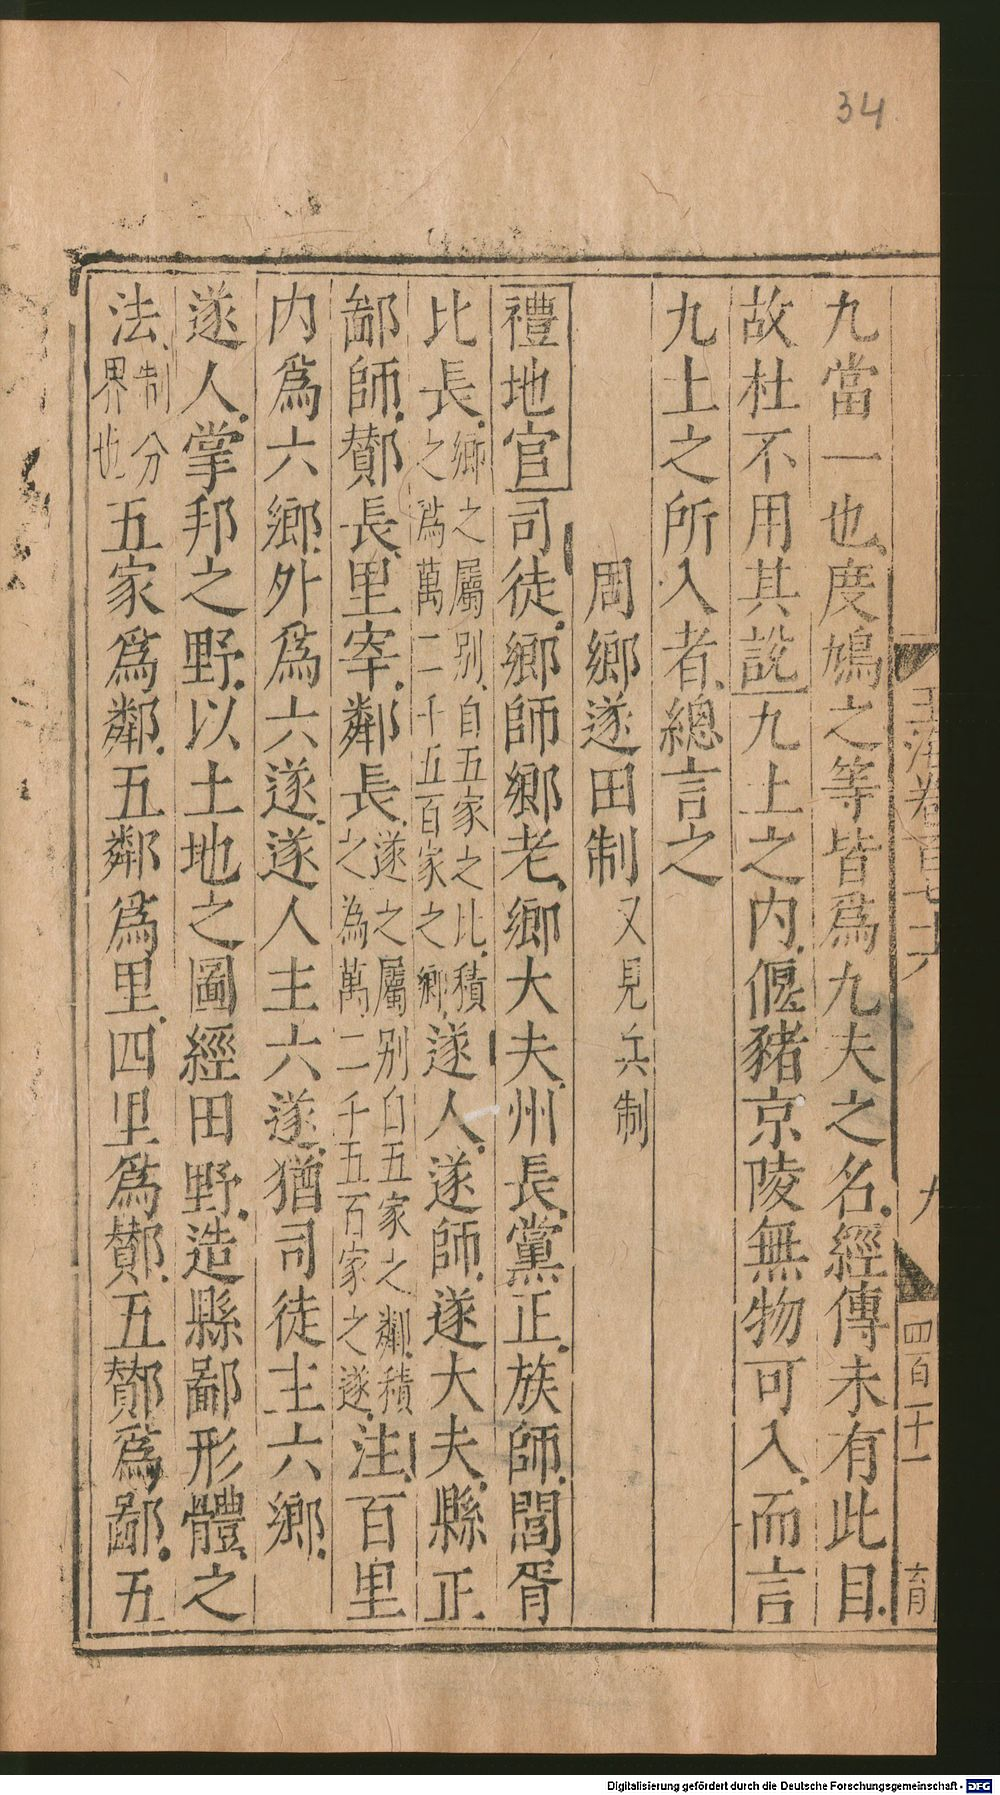 34
玉海卷百七十六
九
四百二十一
育
九當一也度鳩之等皆爲九夫之名經傳未有此目
故杜不用其說九土之内偃豬京陵無物可入而言
九土之所入者總言之
周鄉遂田制又見兵制
禮地官司徒鄉師鄉老鄉大夫州長黨正族師閭胥
比長鄉之屬别自五家之比積之爲萬二千五百家之鄉遂人遂師遂大夫縣正
鄙師酇長里宰鄰長遂之屬别自五家之鄰積之為萬二千五百家之遂注百里
内爲六鄉外爲六遂遂人主六遂猶司徒主六鄉
遂人掌邦之野以土地之圖經田野造縣鄙形體之
法制分界也五家爲鄰五鄰爲里四里爲酇五酇爲鄙五
Digitalisierung gefördert durch die Deutsche Forschungsgemeinschaft - DFG